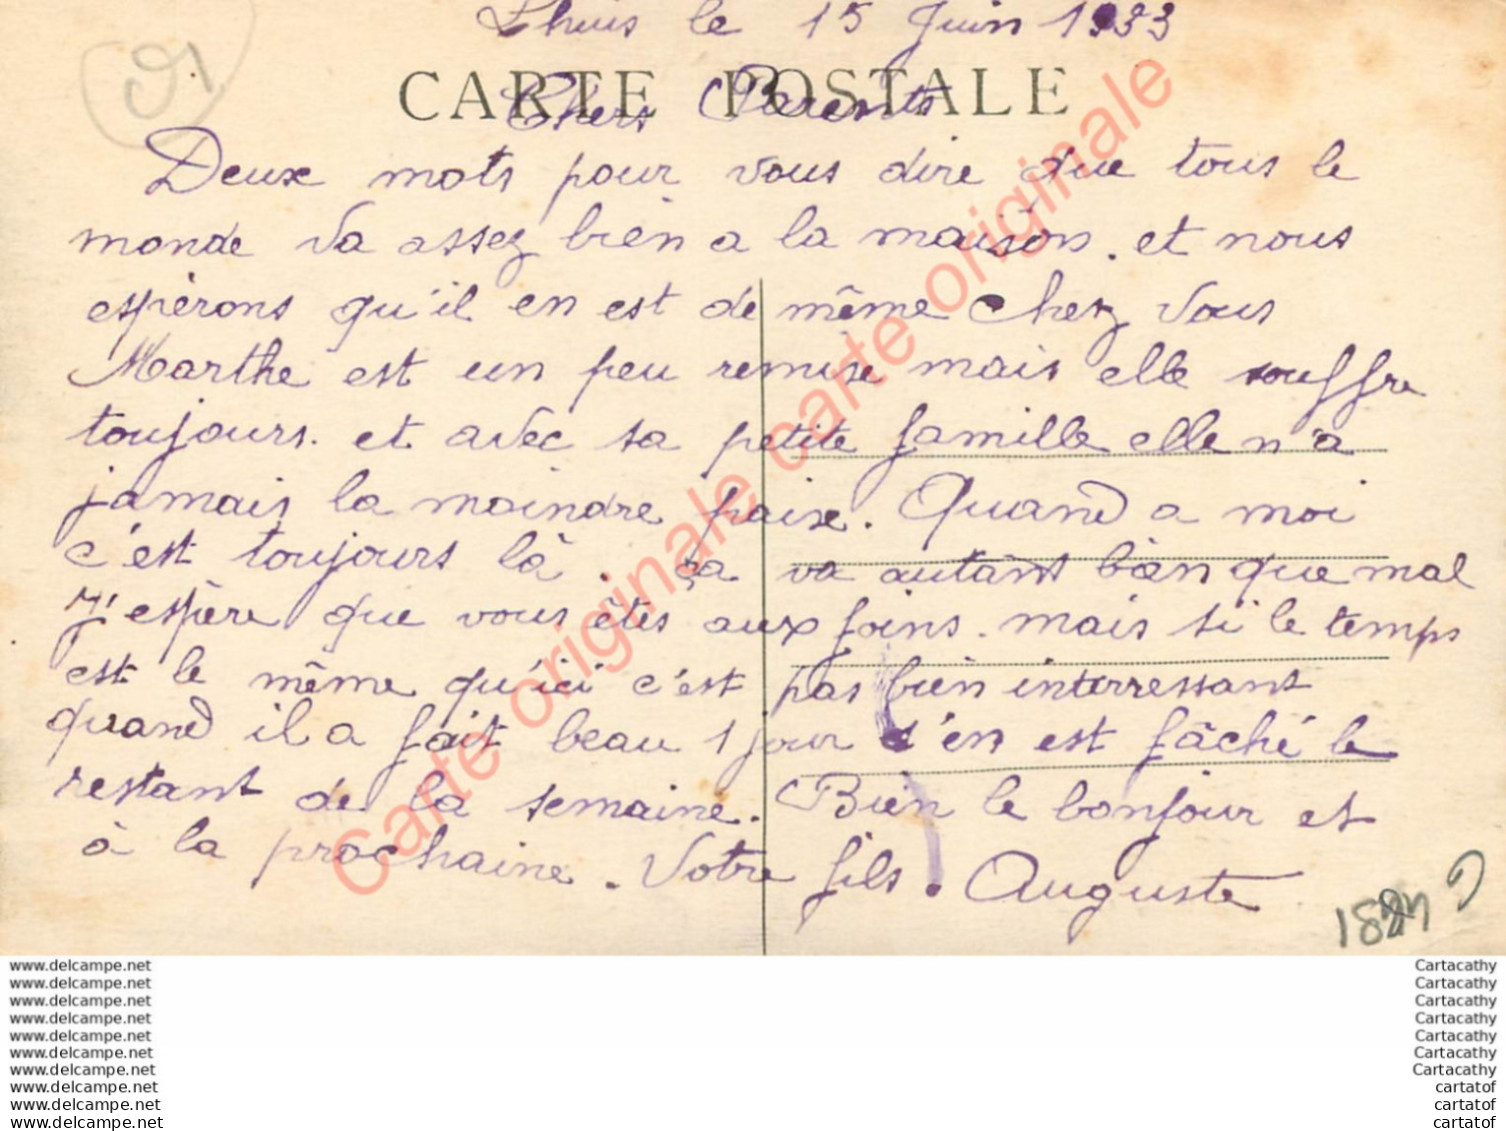 Lhuis le 15 Juin 1933
CARTE POSTALE
Chers Parents
Deux mots pour vous dire que tous le
monde va assez bien a la maison. et nous
espèrons qu'il en est de même chez vous
Marthe est un peu remise mais elle souffre
toujours. et avec sa petite famille elle n'a
jamais la moindre paix. Quand a moi
c'est toujours là. ça va autant bien que mal
J'espère que vous êtes aux foins. mais si le temps
est le même qu'ici c'est pas bien interressant
quand il a fait beau 1 jour s'en est fâché le
restant de la semaine. Bien le bonjour et
à la prochaine. Votre fils. Auguste
Carte originale carte originale
www.delcampe.net
www.delcampe.net
www.delcampe.net
www.delcampe.net
www.delcampe.net
www.delcampe.net
www.delcampe.net
www.delcampe.net
www.delcampe.net
www.delcampe.net
Cartacathy
Cartacathy
Cartacathy
Cartacathy
Cartacathy
Cartacathy
Cartacathy
cartatof
cartatof
cartatof